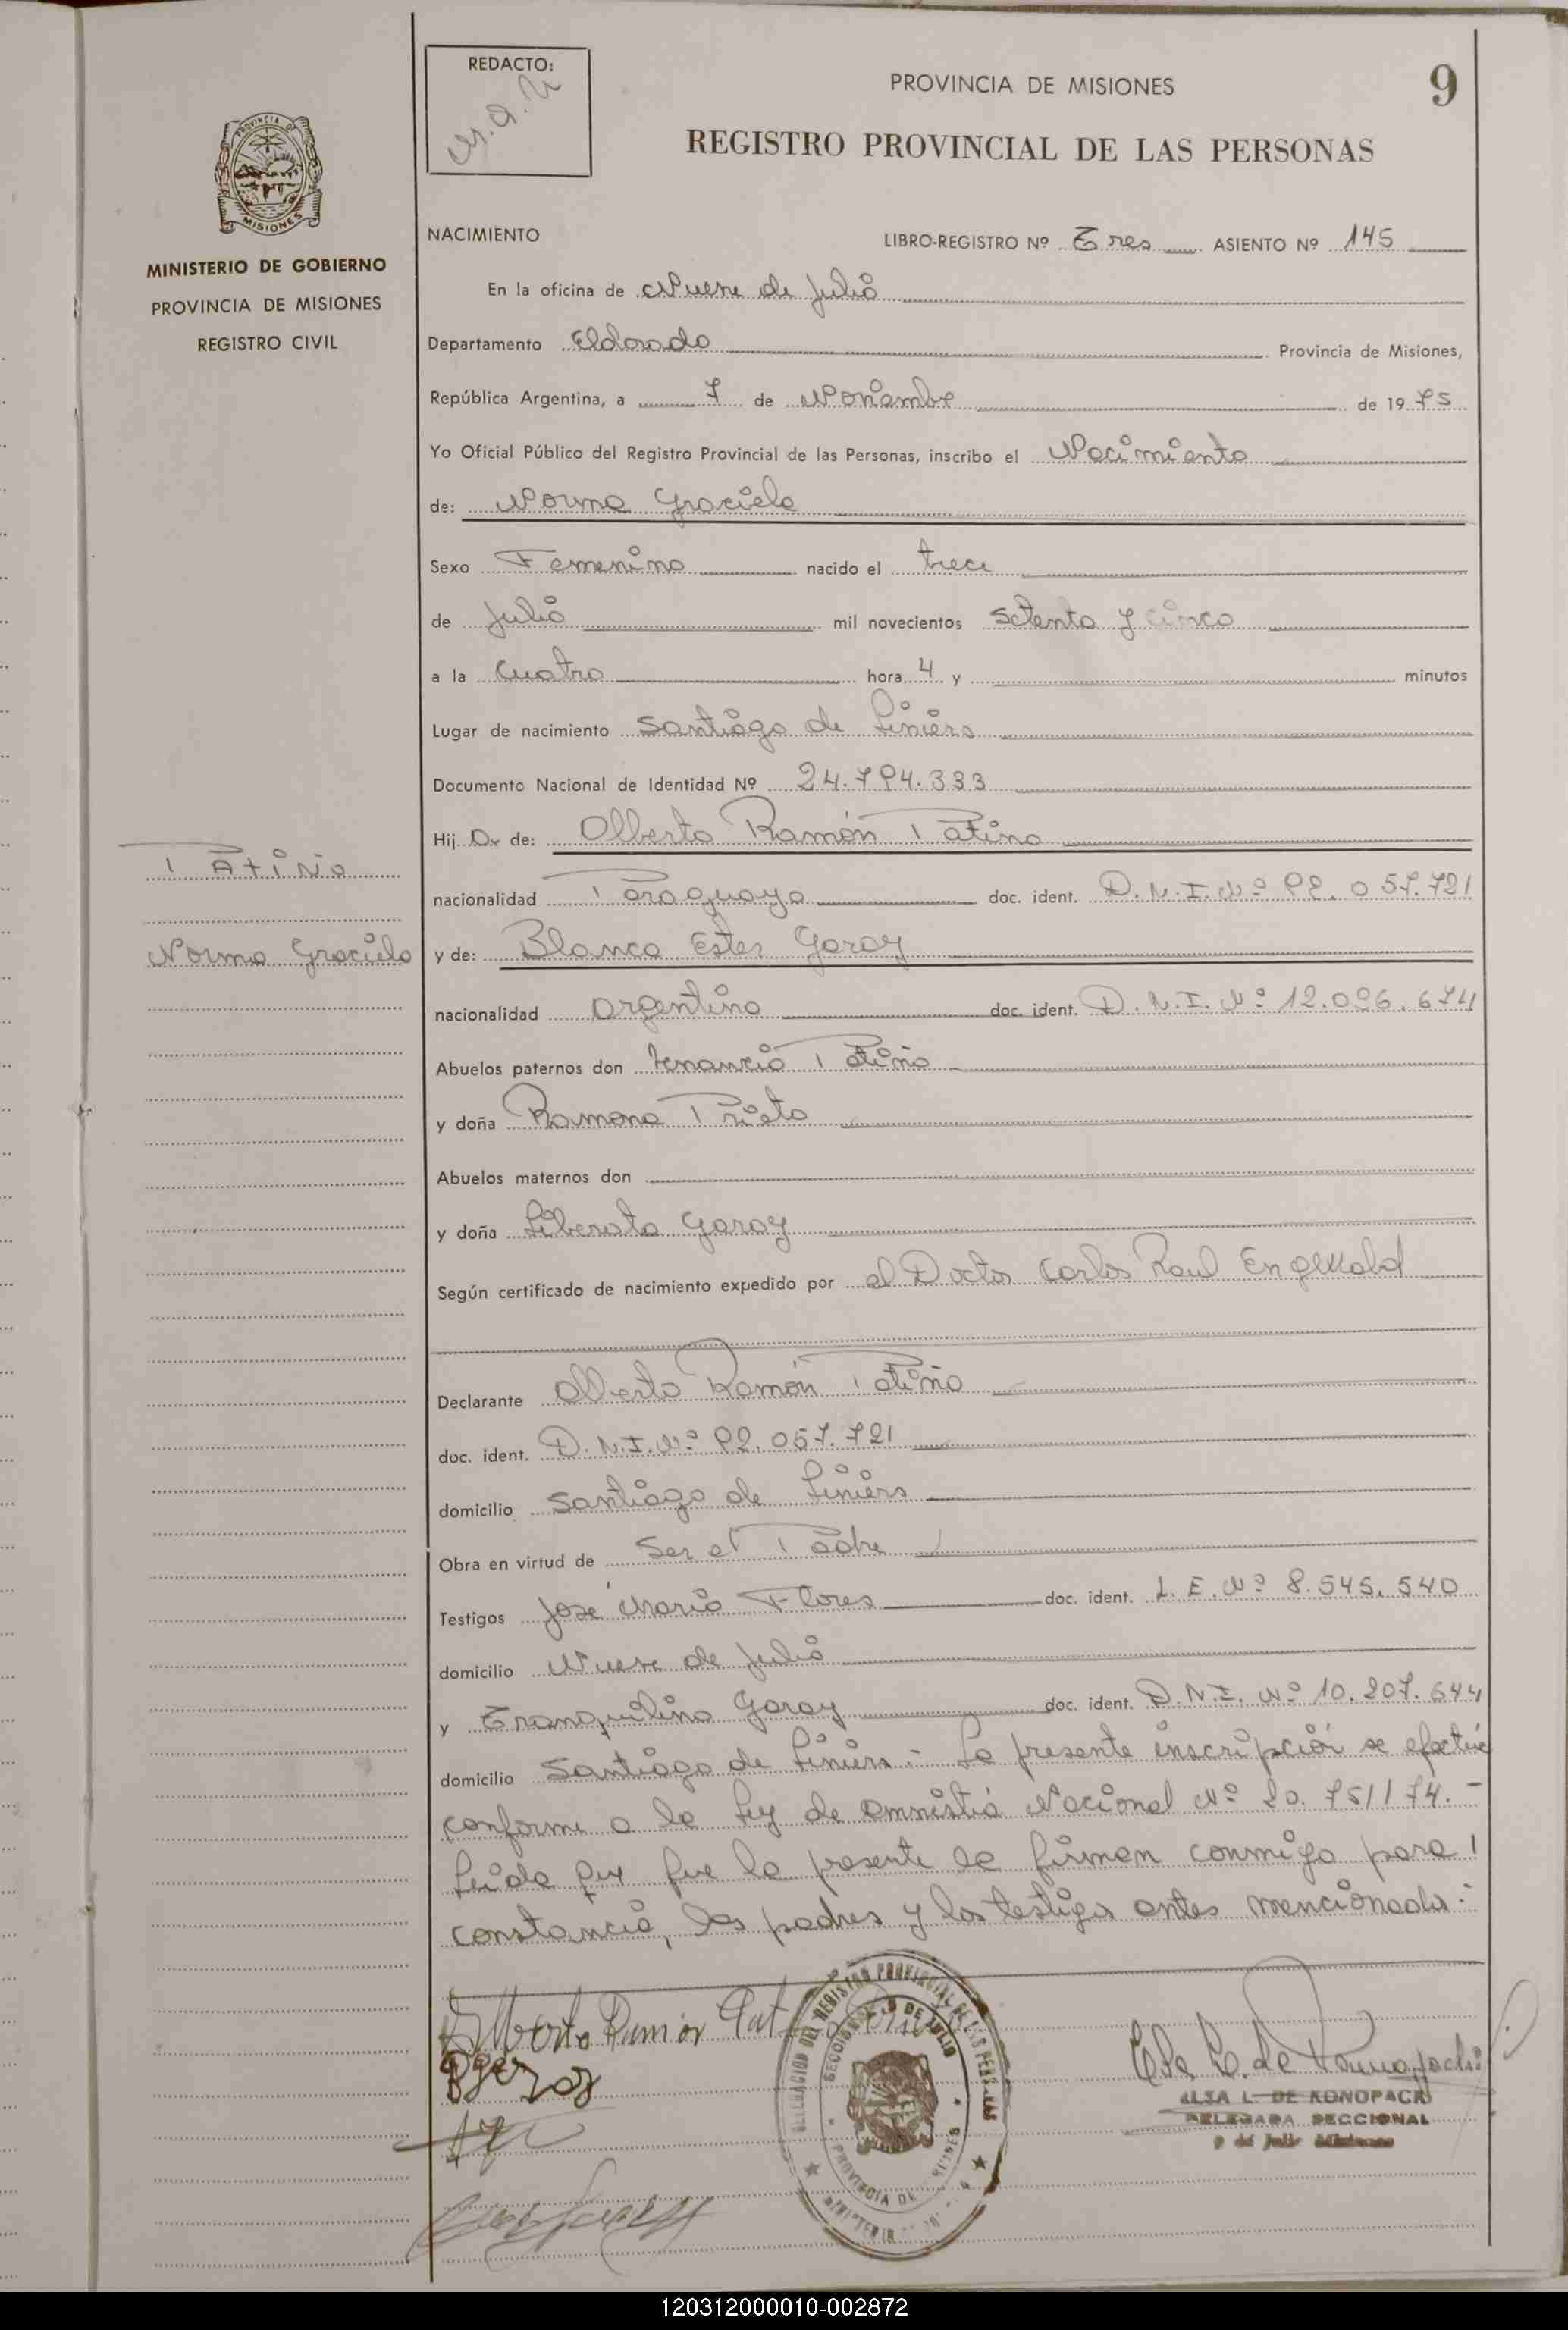 REDACTO:
PROVINCIA DE MISIONES
9
REGISTRO PROVINCIAL DE LAS PERSONAS
PROVINCIA DE
MISIONES
MINISTERIO DE GOBIERNO
PROVINCIA DE MISIONES
REGISTRO CIVIL
NACIMIENTO
LIBRO-REGISTRO Nº Tres ASIENTO Nº 145
En la oficina de Nueve de Julio
Departamento Eldorado Provincia de Misiones,
República Argentina, a 7 de Noviembre de 1975
Yo Oficial Público del Registro Provincial de las Personas, inscribo el Nacimiento
de: Norma Graciela
Sexo Femenino nacido el trece
de Julio mil novecientos setenta y cinco
a la cuatro hora 4 y minutos
Lugar de nacimiento Santiago de Liniers
Documento Nacional de Identidad Nº 24.794.333
Hij a de: Alberto Ramón Patiño
nacionalidad Paraguaya doc. ident. D.N.I. Nº 92.057.721
y de: Blanca Ester Garay
nacionalidad argentina doc. ident. D.N.I. Nº 12.096.674
Abuelos paternos don Venancio Patiño
y doña Ramona Prieto
Abuelos maternos don
y doña Liberata Garay
Según certificado de nacimiento expedido por el Doctor Carlos Raul
Declarante Alberto Ramón Patiño
doc. ident. D.N.I. Nº 92.057.721
domicilio Santiago de Liniers
Obra en virtud de Ser el Padre
Testigos José Mario Flores doc. ident. L.E. Nº 8.545.540
domicilio Nueve de Julio
y Tranquilino Garay doc. ident. D.N.I. Nº 10.207.644
domicilio Santiago de Liniers.- La presente inscripción se efectúa
conforme a la Ley de amnistía Nacional Nº 20.751/74.-
Leida que fue la presente la firman conmigo para
constancia, los padres y los testigos antes mencionados.-
Patiño
Norma Graciela
Alberto Ramón
ELSA L. DE KONOPACKI
DELEGADA SECCIONAL
9 de Julio Misiones
DELEGACION DEL REGISTRO PROVINCIAL DE LAS PERSONAS
SECCIONAL 9 DE JULIO
PROVINCIA DE MISIONES
120312000010-002872